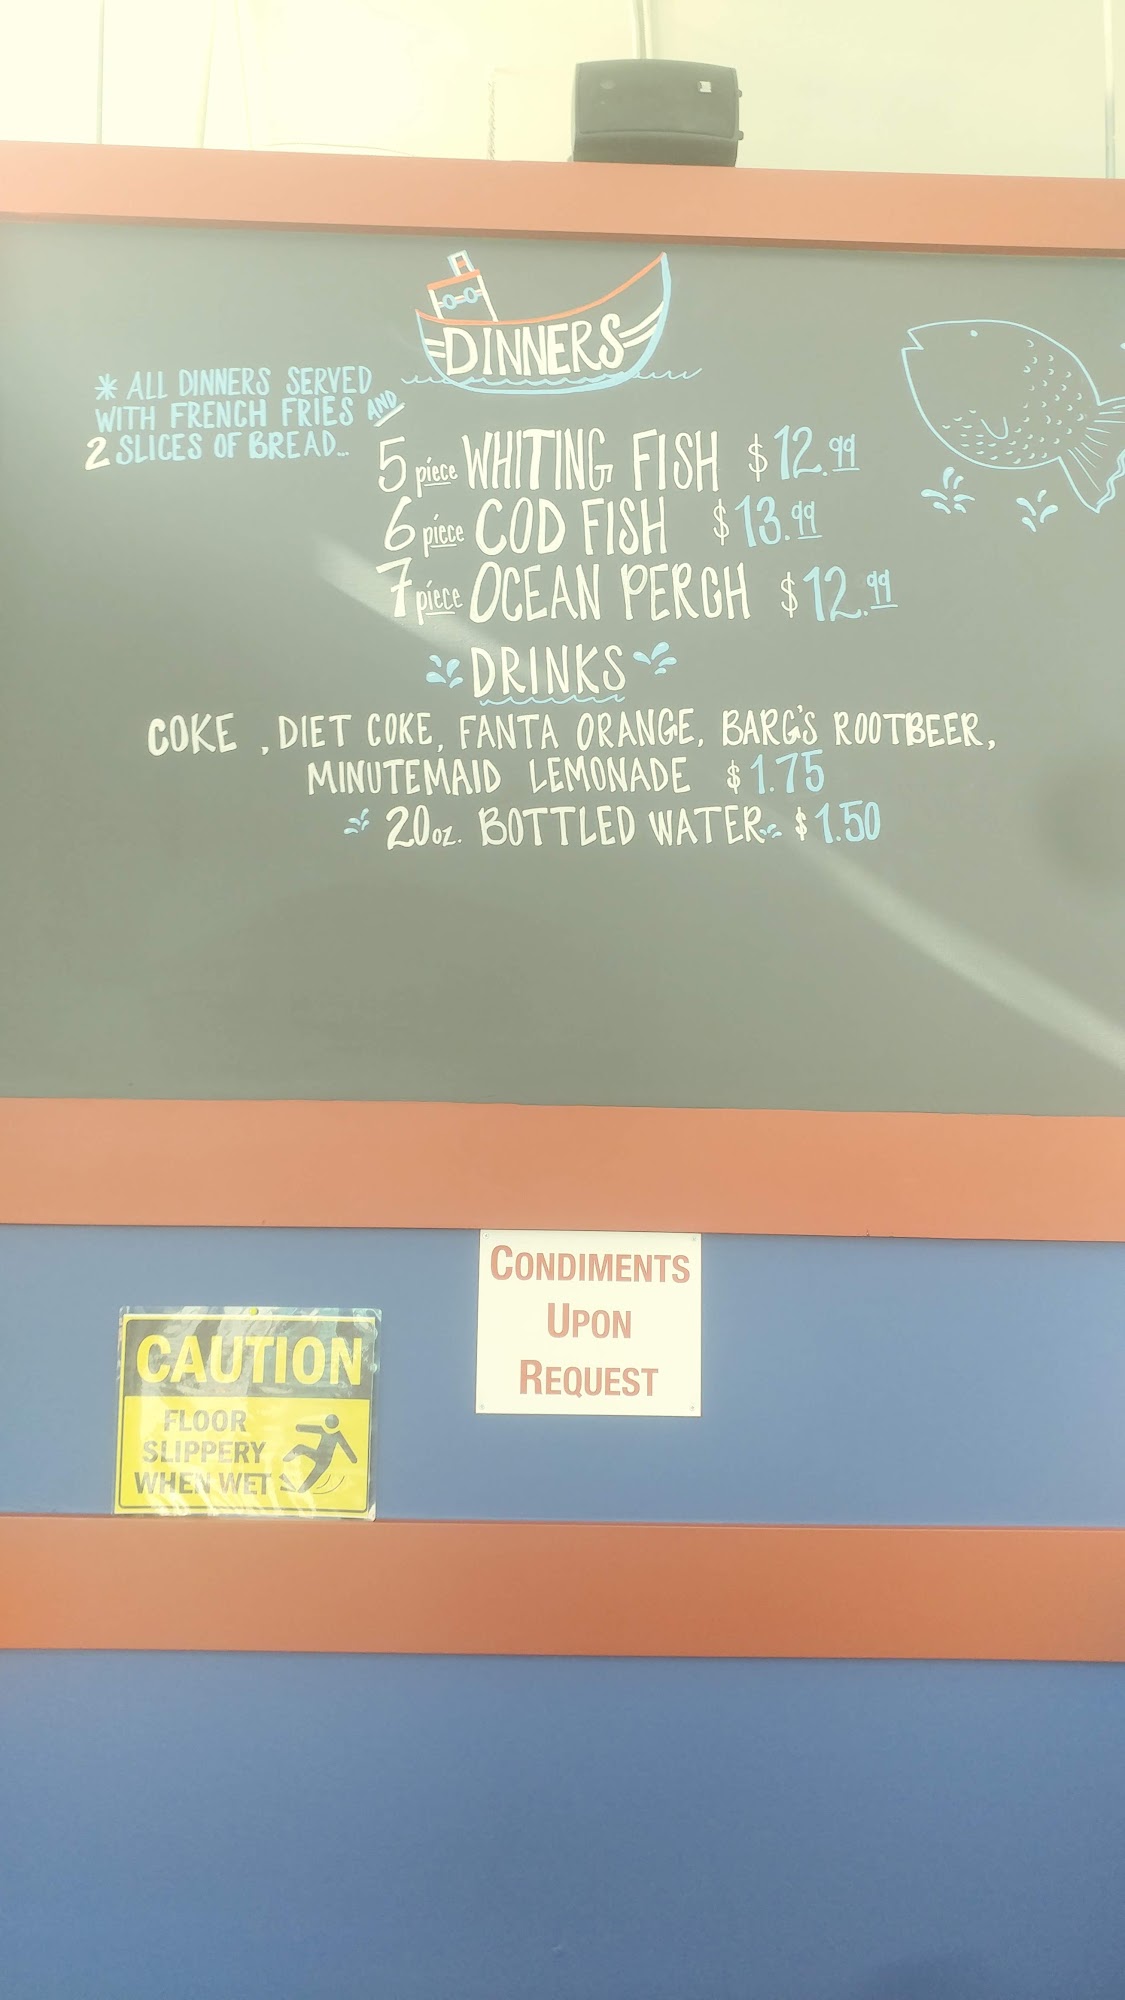 DINNERS
* ALL DINNERS SERVED
WITH FRENCH FRIES AND
2 SLICES OF BREAD...
5 piece WHITING FISH $12.99
6 piece COD FISH $13.99
7 piece OCEAN PERCH $12.99
DRINKS
COKE , DIET COKE, FANTA ORANGE, BARG'S ROOTBEER,
MINUTEMAID LEMONADE $1.75
20oz. BOTTLED WATER $1.50
CONDIMENTS
UPON
REQUEST
CAUTION
FLOOR
SLIPPERY
WHEN WET